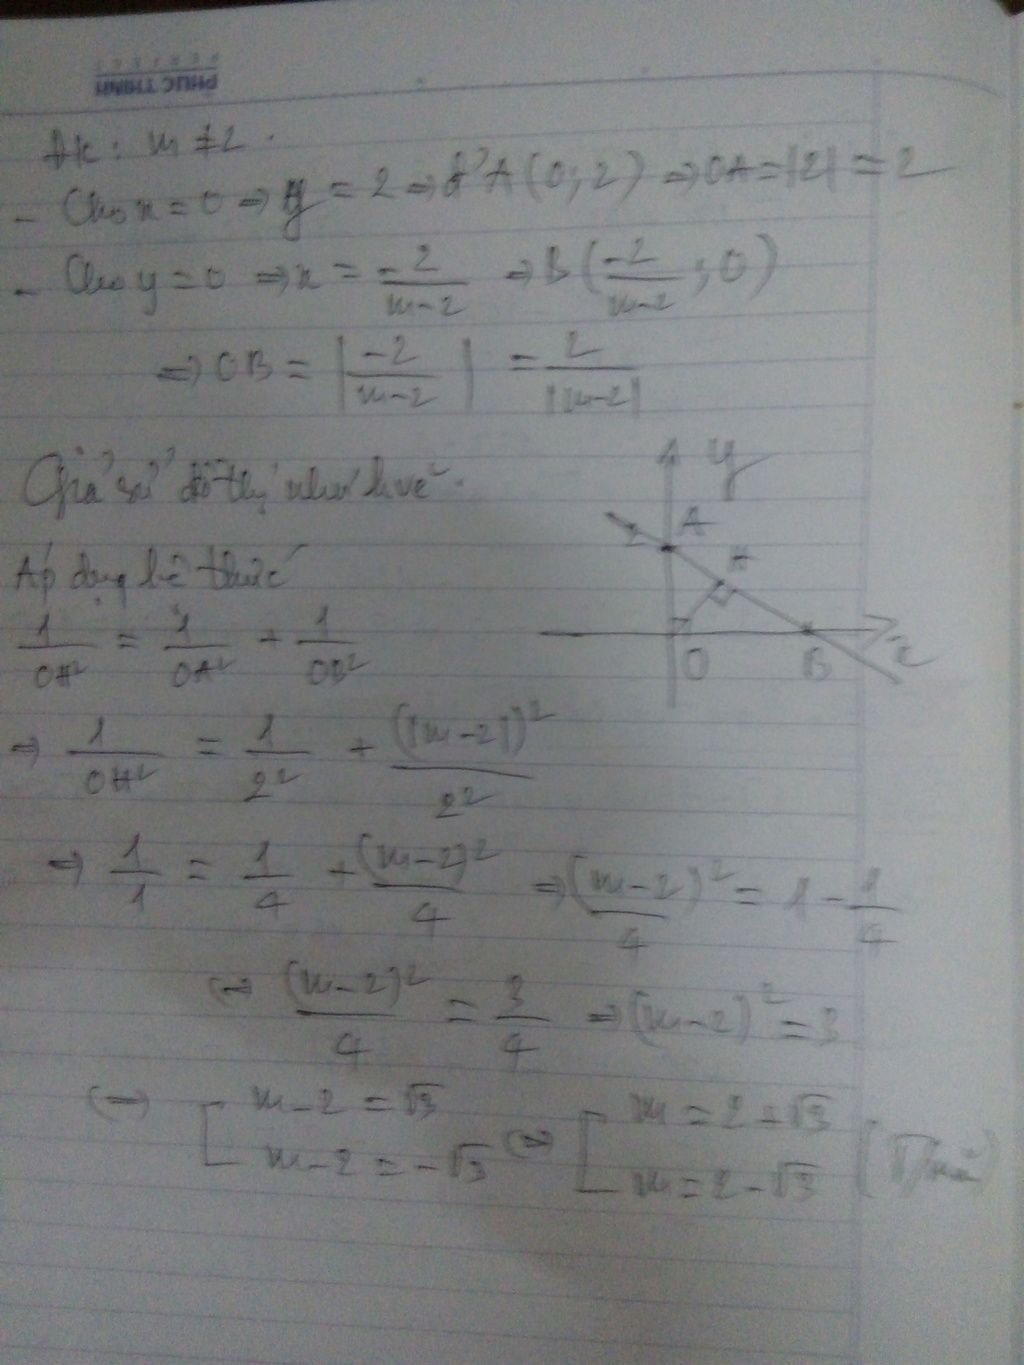 PHUC THINH
ĐK: m ≠ 2.
- Cho x = 0 => y = 2 => A(0; 2) => OA = |2| = 2
- Cho y = 0 => x = -2/(m-2) => B(-2/(m-2); 0)
=> OB = |-2/(m-2)| = 2/|m-2|
Giả sử đồ thị như h.vẽ.
y
A
H
O B x
Áp dụng hệ thức
1/OH² = 1/OA² + 1/OB²
=> 1/OH² = 1/2² + (|m-2|)²/2²
=> 1/1 = 1/4 + (m-2)²/4 => (m-2)²/4 = 1 - 1/4
<=> (m-2)²/4 = 3/4 => (m-2)² = 3
<=> [ m-2 = √3 <=> [ m = 2+√3
m-2 = -√3 m = 2-√3 (T/mãn)